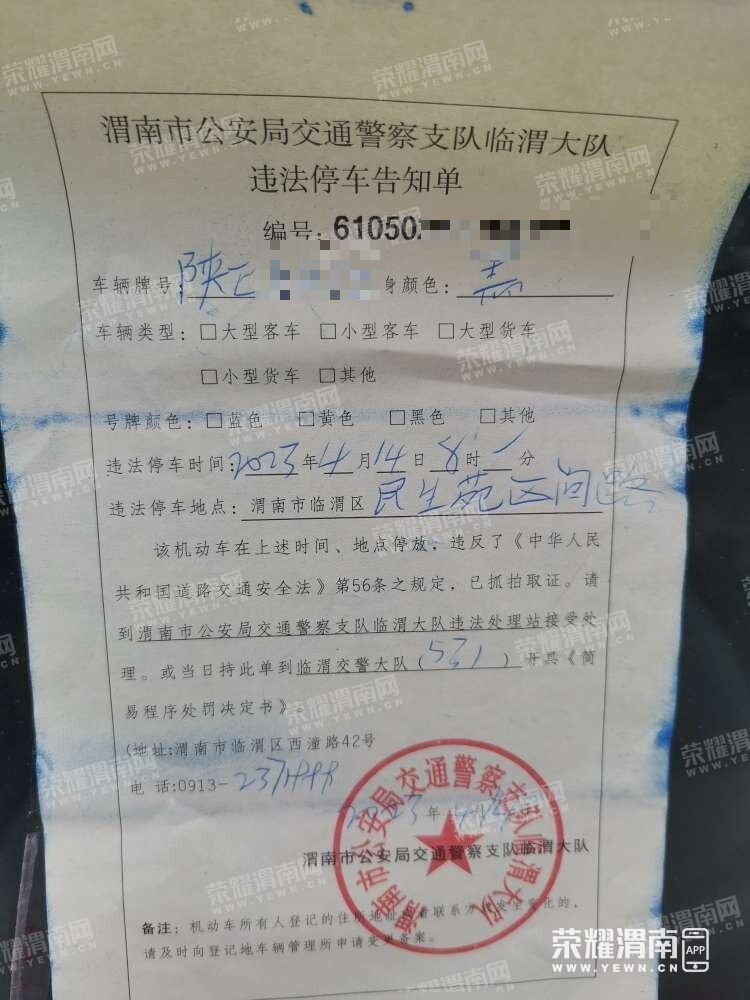 渭南市公安局交通警察支队临渭大队
违法停车告知单
编号: 61050
车辆牌号: 陕E 身颜色: 青
车辆类型: □大型客车 □小型客车 □大型货车
□小型货车 □其他
号牌颜色: □蓝色 □黄色 □黑色 □其他
违法停车时间: 2023年4月14日8时 分
违法停车地点: 渭南市临渭区民生苑区间路
该机动车在上述时间、地点停放，违反了《中华人民
共和国道路交通安全法》第56条之规定，已抓拍取证。请
到渭南市公安局交通警察支队临渭大队违法处理站接受处
理。或当日持此单到临渭交警大队(531)开具《简
易程序处罚决定书》。
(地址:渭南市临渭区西潼路42号
电 话:0913-
2023年 月
渭南市公安局交通警察支队临渭大队
备注: 机动车所有人登记的住所地址或者联系方式发生变化的，
请及时向登记地车辆管理所申请变更备案。
荣耀渭南 APP
WWW.YEWN.CN
荣耀渭南网
WWW.YEWN.CN